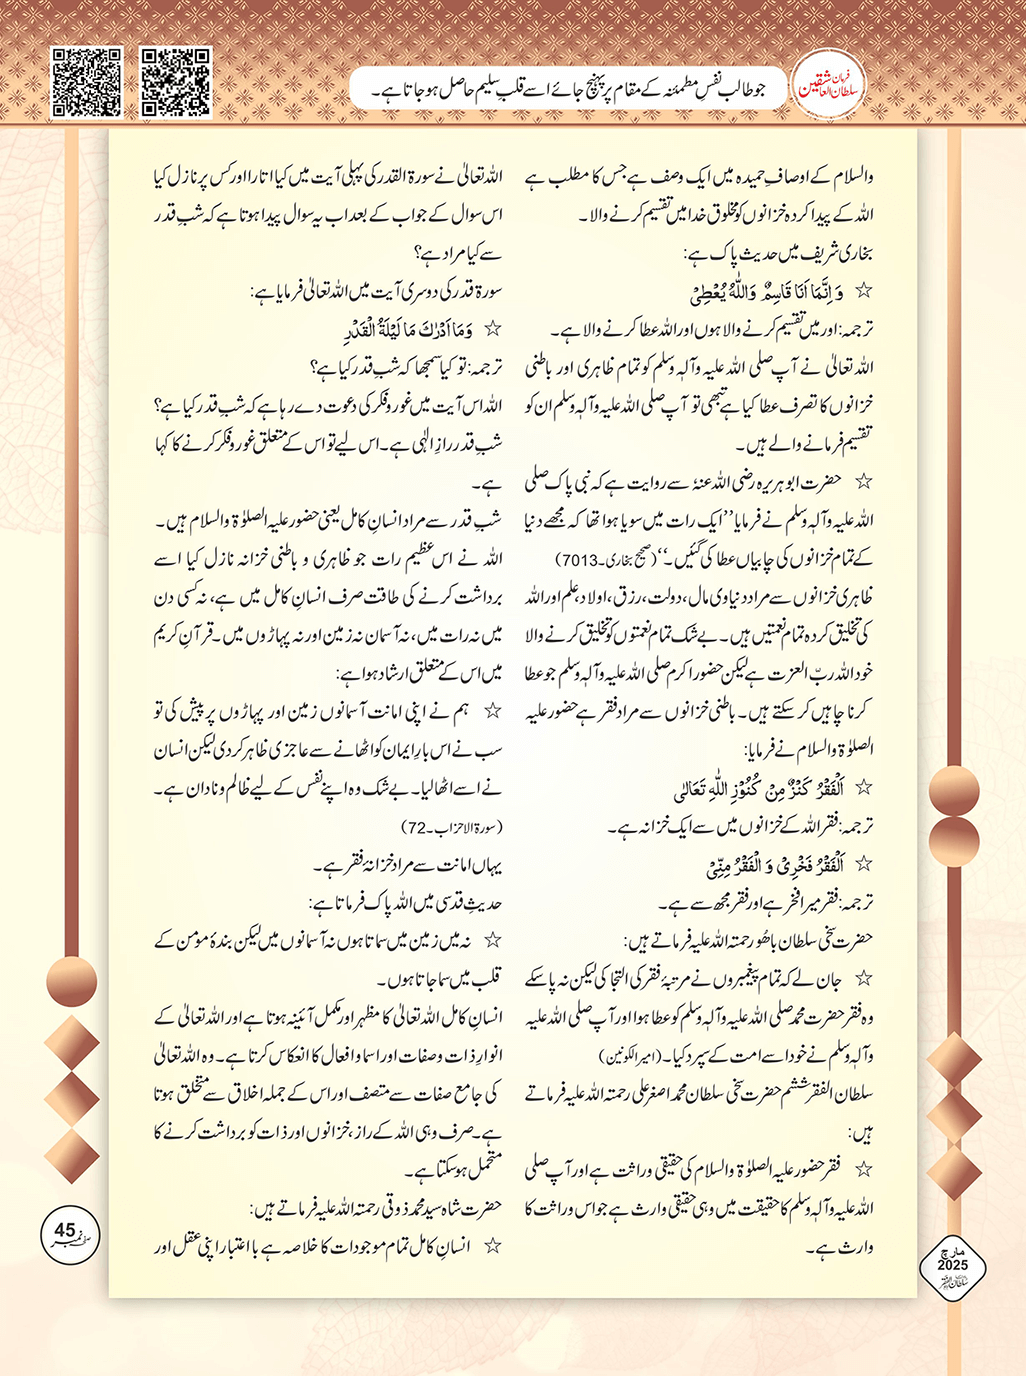 فرمان
سلطان العاشقین
جو طالب نفسِ مطمئنہ کے مقام پر پہنچ جائے اسے قلبِ سلیم حاصل ہو جاتا ہے۔
والسلام کے اوصافِ حمیدہ میں ایک وصف ہے جس کا مطلب ہے
اللہ کے پیدا کردہ خزانوں کو مخلوق خدا میں تقسیم کرنے والا۔
بخاری شریف میں حدیث پاک ہے:
☆ وَ اِنَّمَا اَنَا قَاسِمٌ وَاللّٰهُ يُعْطِيْ
ترجمہ: اور میں تقسیم کرنے والا ہوں اور اللہ عطا کرنے والا ہے۔
اللہ تعالیٰ نے آپ صلی اللہ علیہ وآلہٖ وسلم کو تمام ظاہری اور باطنی
خزانوں کا تصرف عطا کیا ہے تبھی تو آپ صلی اللہ علیہ وآلہٖ وسلم ان کو
تقسیم فرمانے والے ہیں۔
☆ حضرت ابوہریرہ رضی اللہ عنہٗ سے روایت ہے کہ نبی پاک صلی
اللہ علیہ وآلہٖ وسلم نے فرمایا ’’ایک رات میں سویا ہوا تھا کہ مجھے دنیا
کے تمام خزانوں کی چابیاں عطا کی گئیں۔‘‘ (صحیح بخاری۔7013)
ظاہری خزانوں سے مراد دنیاوی مال، دولت، رزق، اولاد، علم اور اللہ
کی تخلیق کردہ تمام نعمتیں ہیں۔ بے شک تمام نعمتوں کو تخلیق کرنے والا
خود اللہ ربّ العزت ہے لیکن حضور اکرم صلی اللہ علیہ وآلہٖ وسلم جو عطا
کرنا چاہیں کر سکتے ہیں۔ باطنی خزانوں سے مراد فقر ہے حضور علیہ
الصلوٰۃ والسلام نے فرمایا:
☆ اَلْفَقْرُ كَنْزٌ مِنْ كُنُوْزِ اللّٰهِ تَعَالٰى
ترجمہ: فقر اللہ کے خزانوں میں سے ایک خزانہ ہے۔
☆ اَلْفَقْرُ فَخْرِيْ وَ الْفَقْرُ مِنِّيْ
ترجمہ: فقر میرا فخر ہے اور فقر مجھ سے ہے۔
حضرت سخی سلطان باھُو رحمتہ اللہ علیہ فرماتے ہیں:
☆ جان لے کہ تمام پیغمبروں نے مرتبۂ فقر کی التجا کی لیکن نہ پا سکے
وہ فقر حضرت محمد صلی اللہ علیہ وآلہٖ وسلم کو عطا ہوا اور آپ صلی اللہ علیہ
وآلہٖ وسلم نے خود اسے امت کے سپرد کیا۔ (امیر الکونین)
سلطان الفقر ششم حضرت سخی سلطان محمد اصغر علی رحمتہ اللہ علیہ فرماتے
ہیں:
☆ فقر حضور علیہ الصلوٰۃ والسلام کی حقیقی وراثت ہے اور آپ صلی
اللہ علیہ وآلہٖ وسلم کا حقیقت میں وہی حقیقی وارث ہے جو اس وراثت کا
وارث ہے۔
اللہ تعالیٰ نے سورۃ القدر کی پہلی آیت میں کیا اتارا اور کس پر نازل کیا
اس سوال کے جواب کے بعد اب یہ سوال پیدا ہوتا ہے کہ شبِ قدر
سے کیا مراد ہے؟
سورۃ قدر کی دوسری آیت میں اللہ تعالیٰ فرماتا ہے:
☆ وَمَا اَدْرٰكَ مَا لَيْلَةُ الْقَدْرِ
ترجمہ: تو کیا سمجھا کہ شبِ قدر کیا ہے؟
اللہ اس آیت میں غور و فکر کی دعوت دے رہا ہے کہ شبِ قدر کیا ہے؟
شبِ قدر رازِ الٰہی ہے۔ اس لیے تو اس کے متعلق غور و فکر کرنے کا کہا
ہے۔
شبِ قدر سے مراد انسانِ کامل یعنی حضور علیہ الصلوٰۃ والسلام ہیں۔
اللہ نے اس عظیم رات جو ظاہری و باطنی خزانہ نازل کیا اسے
برداشت کرنے کی طاقت صرف انسانِ کامل میں ہے، نہ کسی دن
میں نہ رات میں، نہ آسمان نہ زمین اور نہ پہاڑوں میں۔ قرآنِ کریم
میں اس کے متعلق ارشاد ہوا ہے:
☆ ہم نے اپنی امانت آسمانوں زمین اور پہاڑوں پر پیش کی تو
سب نے اس بارِ ایمان کو اٹھانے سے عاجزی ظاہر کر دی لیکن انسان
نے اسے اٹھا لیا۔ بے شک وہ اپنے نفس کے لیے ظالم و نادان ہے۔
(سورۃ الاحزاب۔72)
یہاں امانت سے مراد خزانۂ فقر ہے۔
حدیثِ قدسی میں اللہ پاک فرماتا ہے:
☆ نہ میں زمین میں سماتا ہوں نہ آسمانوں میں لیکن بندۂ مومن کے
قلب میں سما جاتا ہوں۔
انسانِ کامل اللہ تعالیٰ کا مظہر اور مکمل آئینہ ہوتا ہے اور اللہ تعالیٰ کے
انوارِ ذات و صفات اور اسما و افعال کا انعکاس کرتا ہے۔ وہ اللہ تعالیٰ
کی جامع صفات سے متصف اور اس کے جملہ اخلاق سے متخلق ہوتا
ہے۔ صرف وہی اللہ کے راز، خزانوں اور ذات کو برداشت کرنے کا
متحمل ہو سکتا ہے۔
حضرت شاہ سید محمد ذوقی رحمتہ اللہ علیہ فرماتے ہیں:
☆ انسانِ کامل تمام موجودات کا خلاصہ ہے با اعتبار اپنی عقل اور
45
صفحہ نمبر
مارچ
2025
سلطان الفقر